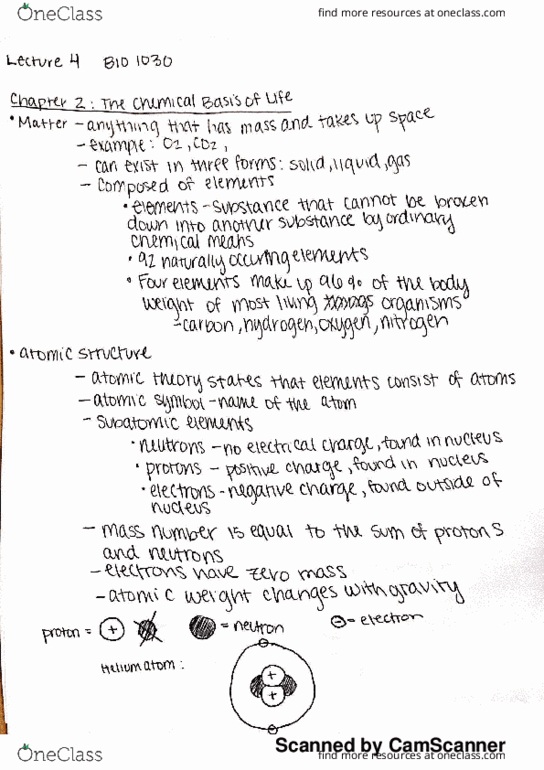 OneClass
find more resources at oneclass.com
Lecture 4 BIO 1030
Chapter 2: The Chemical Basis of Life
• Matter - anything that has mass and takes up space
- example: O2, CO2,
- can exist in three forms: solid, liquid, gas
- Composed of elements
• elements - substance that cannot be broken
down into another substance by ordinary
chemical means
• 92 naturally occuring elements
• Four elements make up 96% of the body
weight of most living organisms
- carbon, hydrogen, oxygen, nitrogen
• atomic structure
- atomic theory states that elements consist of atoms
- atomic symbol - name of the atom
- Subatomic elements
• neutrons - no electrical charge, found in nucleus
• protons - positive charge, found in nucleus
• electrons - negative charge, found outside of
nucleus
- mass number is equal to the sum of protons
and neutrons
- electrons have zero mass
- atomic weight changes with gravity
proton = + = neutron - = electron
Helium atom:
+
+
Scanned by CamScanner
OneClass
find more resources at oneclass.com